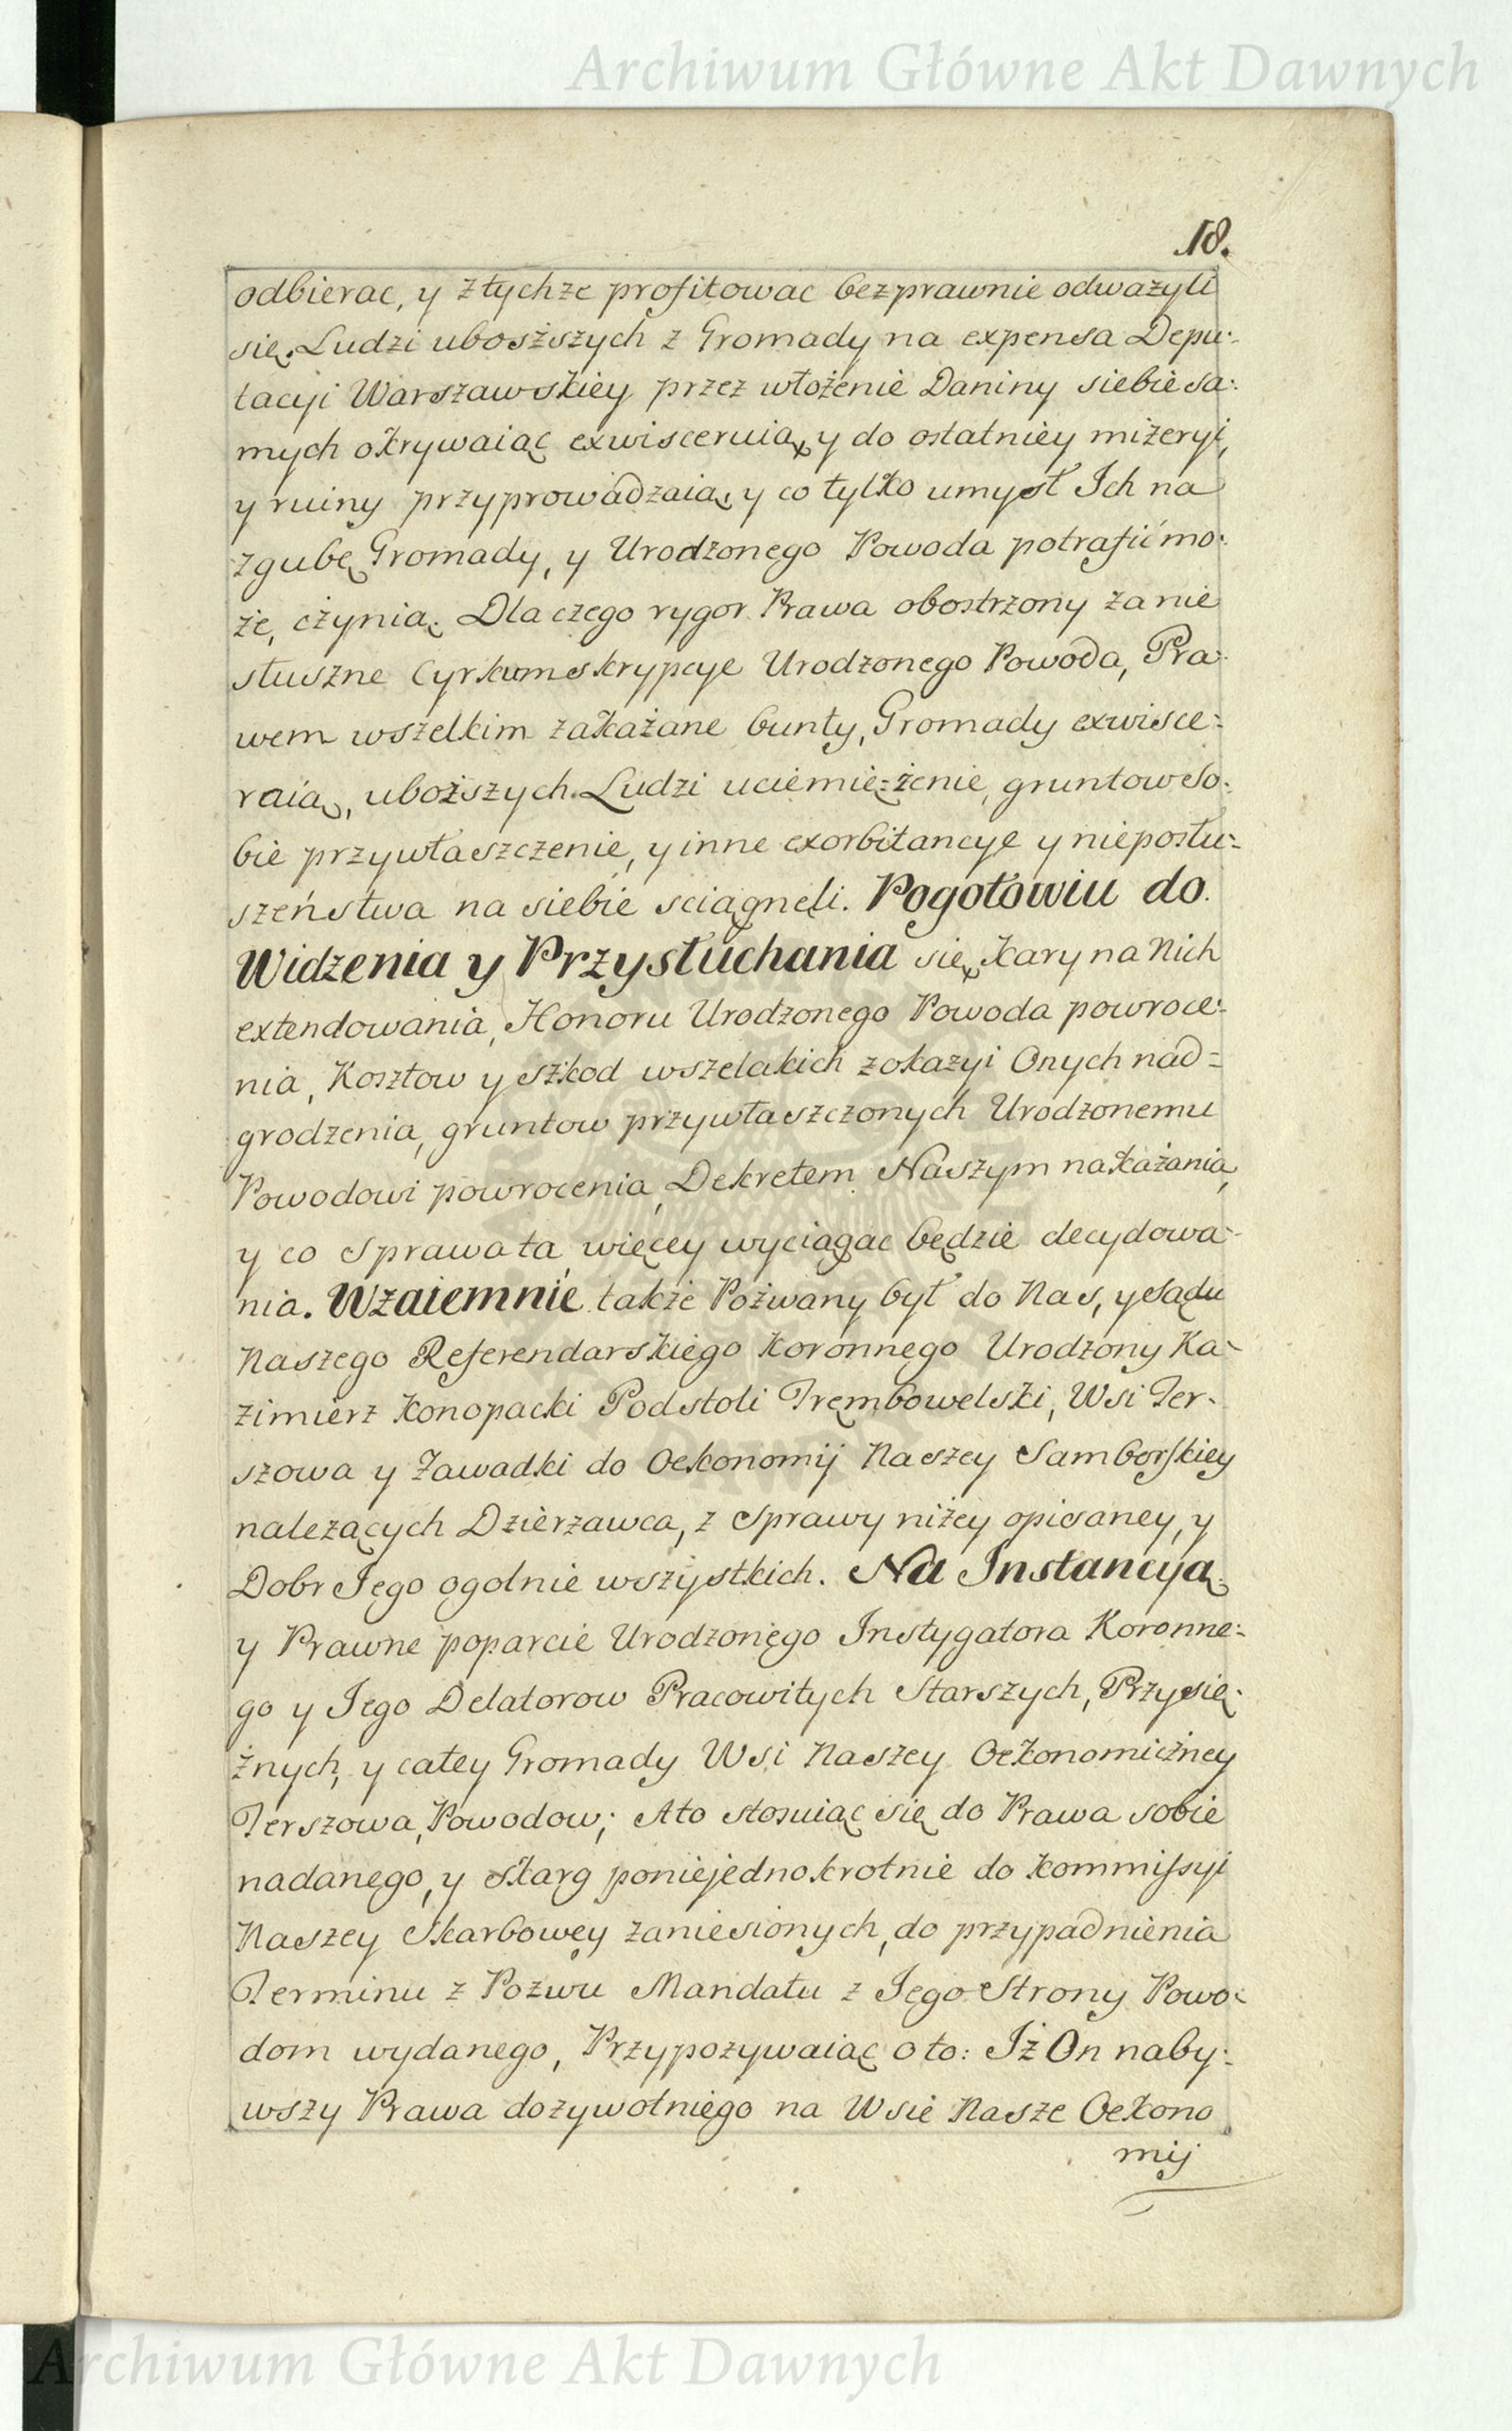 Archiwum Główne Akt Dawnych
18.
odbierac, y z tychze profitowac bezprawnie odwazyli
się. Ludzi ubosższych z Gromady na expensa Depu:
tacyi Warszawskiey przez włożenie Daniny siebie sa:
mych okrywaiąc exwisceruią, y do ostatniey mizeryi,
y ruiny przyprowadzaią, y co tylko umysł Ich na
zgubę Gromady, y Urodzonego Powoda potrafić mo:
że, czynią. Dla czego rygor Prawa obostrzony za nie
słuszne Cyrkumskrypcye Urodzonego Powoda, Pra:
wem wszelkim zakażane bunty, Gromady exwisce:
raią, uboższych Ludzi uciemię:żenie, gruntow so:
bie przywłaszczenie, y inne exorbitancye y nieposłu:
szeństwa na siebie sciągneli. Pogotowiu do
Widzenia y Przysłuchania się kary na Nich
extendowania, Honoru Urodzonego Powoda powroce:
nia, Kosztow y szkod wszelakich z okazyi Onych nad=
grodzenia, gruntow przywłaszczonych Urodzonemu
Powodowi powrocenia, Dekretem Naszym nakażania,
y co Sprawa ta więcey wyciągac będzie decydowa:
nia. Wzaiemnie także Pożwany był do Nas, y sądu
Naszego Referendarskiego Koronnego Urodzony Ka:
zimierz Konopacki Podstoli Trembowelski, Wsi Ter:
szowa y Zawadki do Oekonomij Naszey Samborskiey
należących Dzierzawca, z Sprawy niżey opisaney, y
Dobr Jego ogolnie wszystkich. Na Instancyą
y Prawne poparcie Urodzonego Instygatora Koronne:
go y Jego Delatorow Pracowitych Starszych, Przysię:
żnych, y całey Gromady Wsi Naszey Oekonomiczney
Terszowa, Powodow; A to stosuiąc się do Prawa sobie
nadanego, y skarg poniejednokrotnie do Kommissyi
Naszey Skarbowey zaniesionych, do przypadnienia
Terminu z Pozwu Mandatu z Jego Strony Powo:
dom wydanego, Przypozywaiąc o to: Iż On naby:
wszy Prawa dozywotniego na Wsie Nasze Oekono
mij
Archiwum Główne Akt Dawnych